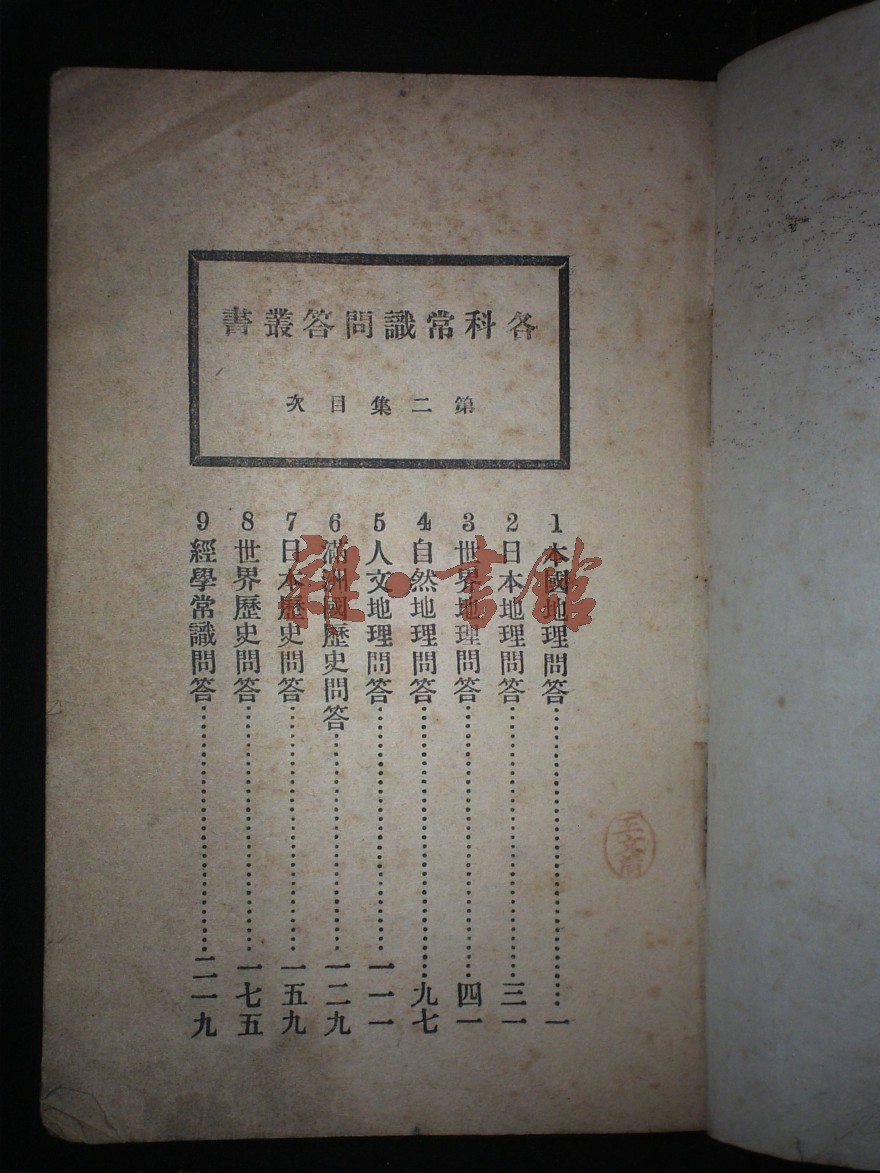 各科常識問答叢書
第二集目次
1本國地理問答……一
2日本地理問答……三一
3世界地理問答……四一
4自然地理問答……九七
5人文地理問答……一一一
6滿洲國歷史問答……一二九
7日本歷史問答……一五九
8世界歷史問答……一七五
9經學常識問答……二一九
雜·書館